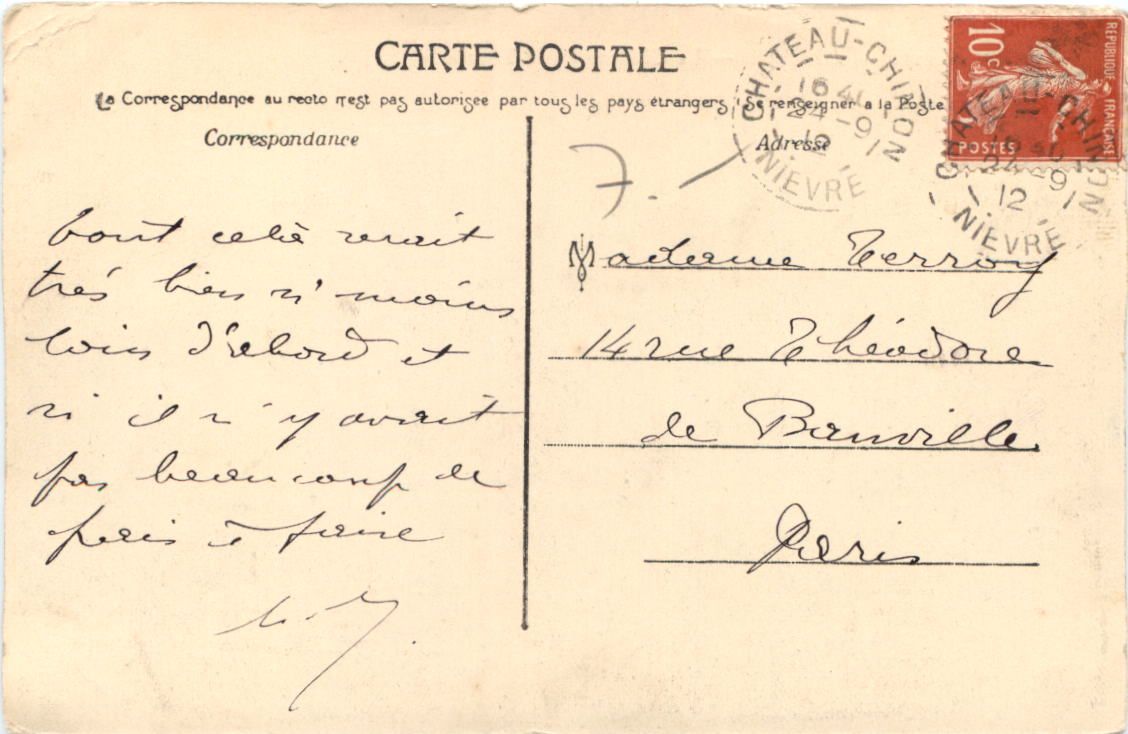 CARTE POSTALE
La Correspondance au recto n'est pas autorisée par tous les pays étrangers (Se renseigner a la Poste
Correspondance
Adresse
CHATEAU-CHINON
16 40
24-9
12
NIEVRE
REPUBLIQUE FRANÇAISE
10c
POSTES
CHATEAU-CHINON
24-9
12
NIEVRE
7.
tout celà serait
très bien si moins
loin d'abord et
si il n'y avait
pas beaucoup de
frais à faire
Madame Terroy
14 rue Théodore
de Banville
Paris